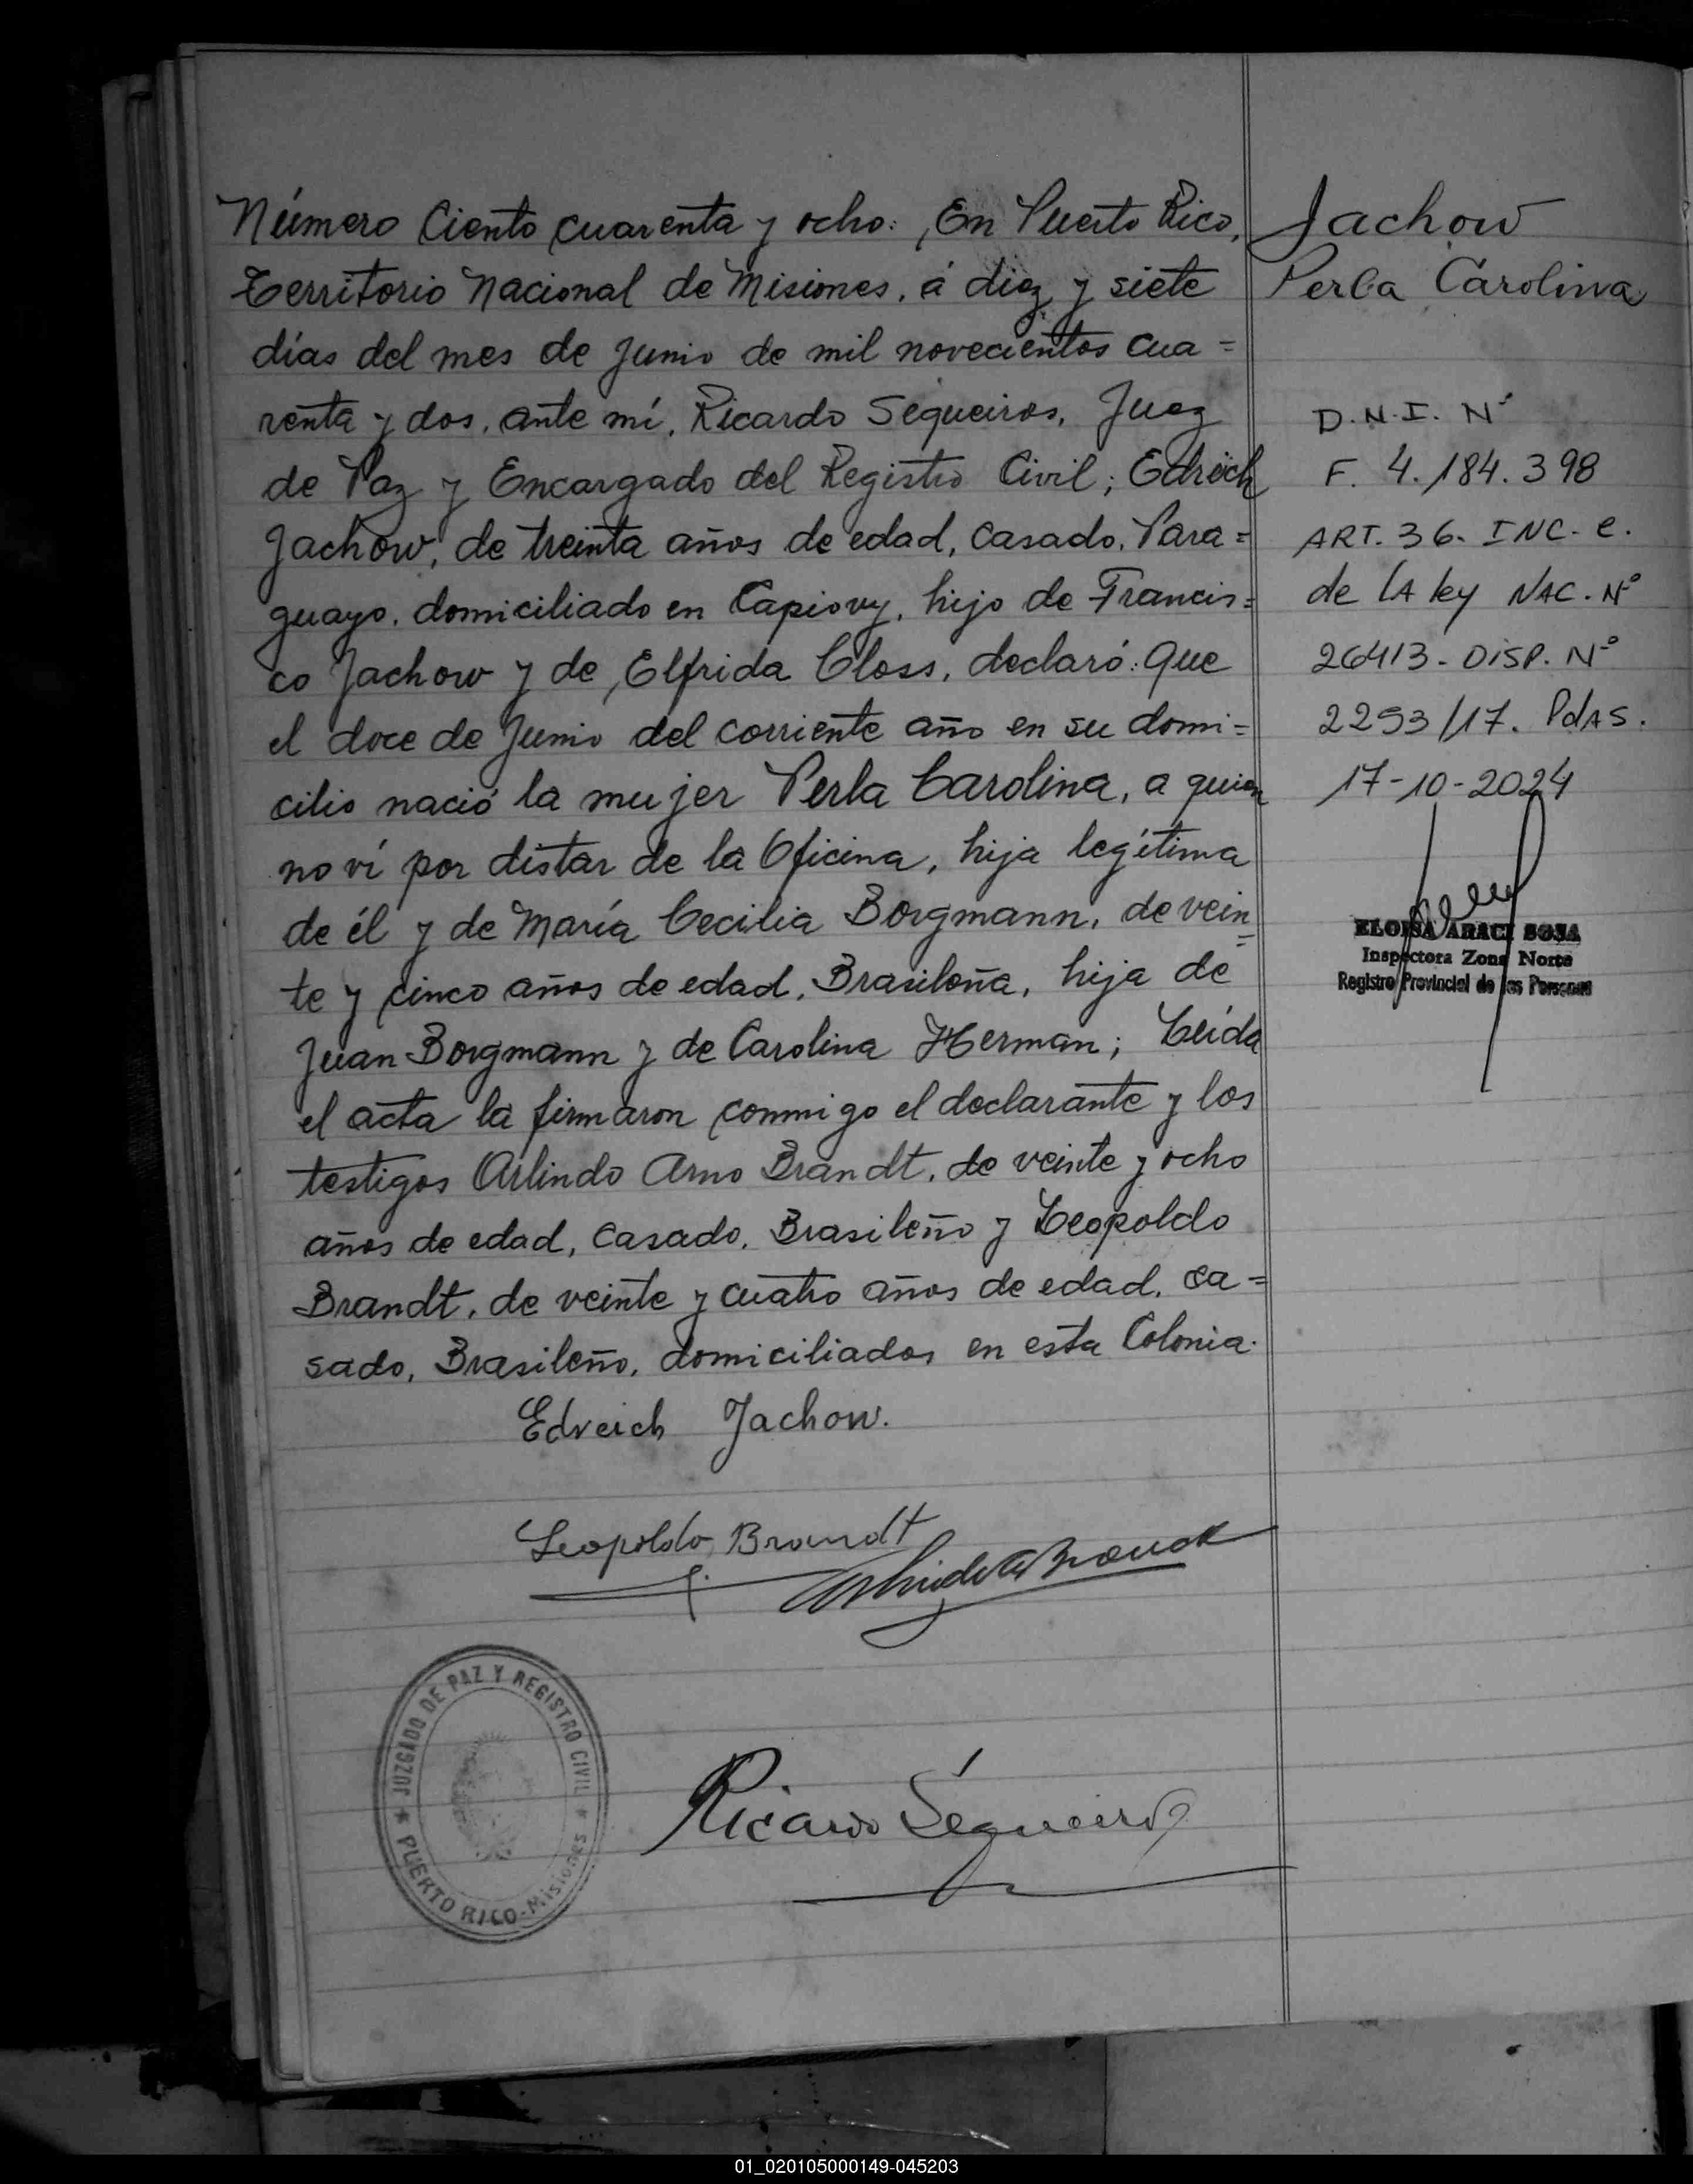 Número Ciento cuarenta y ocho: En Puerto Rico,
Territorio Nacional de Misiones, á diez y siete
días del mes de Junio de mil novecientos cua=
renta y dos, ante mí, Ricardo Sequeiros, Juez
de Paz y Encargado del Registro Civil; Edreich
Jachow, de treinta años de edad, casado, Para=
guayo, domiciliado en Capiovy, hijo de Francis=
co Jachow y de Elfrida Closs, declaró: Que
el doce de Junio del corriente año en su domi=
cilio nació la mujer Perla Carolina, a quien
no ví por distar de la Oficina, hija legítima
de él y de María Cecilia Borgmann, de vein=
te y cinco años de edad, Brasileña, hija de
Juan Borgmann y de Carolina Herman; Leída
el acta la firmaron conmigo el declarante y los
testigos Arlindo Arno Brandt, de veinte y ocho
años de edad, casado, Brasileño y Leopoldo
Brandt, de veinte y cuatro años de edad, ca=
sado, Brasileño, domiciliados en esta Colonia.
Edreich Jachow.
Leopoldo Brandt
Ricardo Sequeiros
JUZGADO DE PAZ Y REGISTRO CIVIL
PUERTO RICO-Misiones
Jachow
Perla Carolina
D.N.I. Nº
F. 4.184.398
ART. 36. INC. e.
de LA ley NAC. Nº
26413- DISP. Nº
2293/17. PdAS.
17-10-2024
ELOISA ARACI SOSA
Inspectora Zona Norte
Registro Provincial de las Personas
01_020105000149-045203